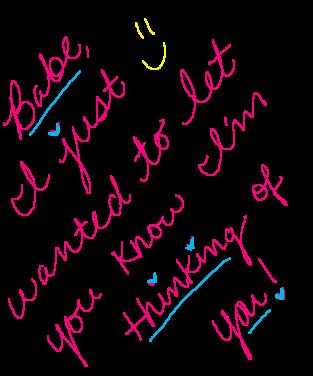 Babe,
I just
wanted to let
you know I'm
thinking of
you!